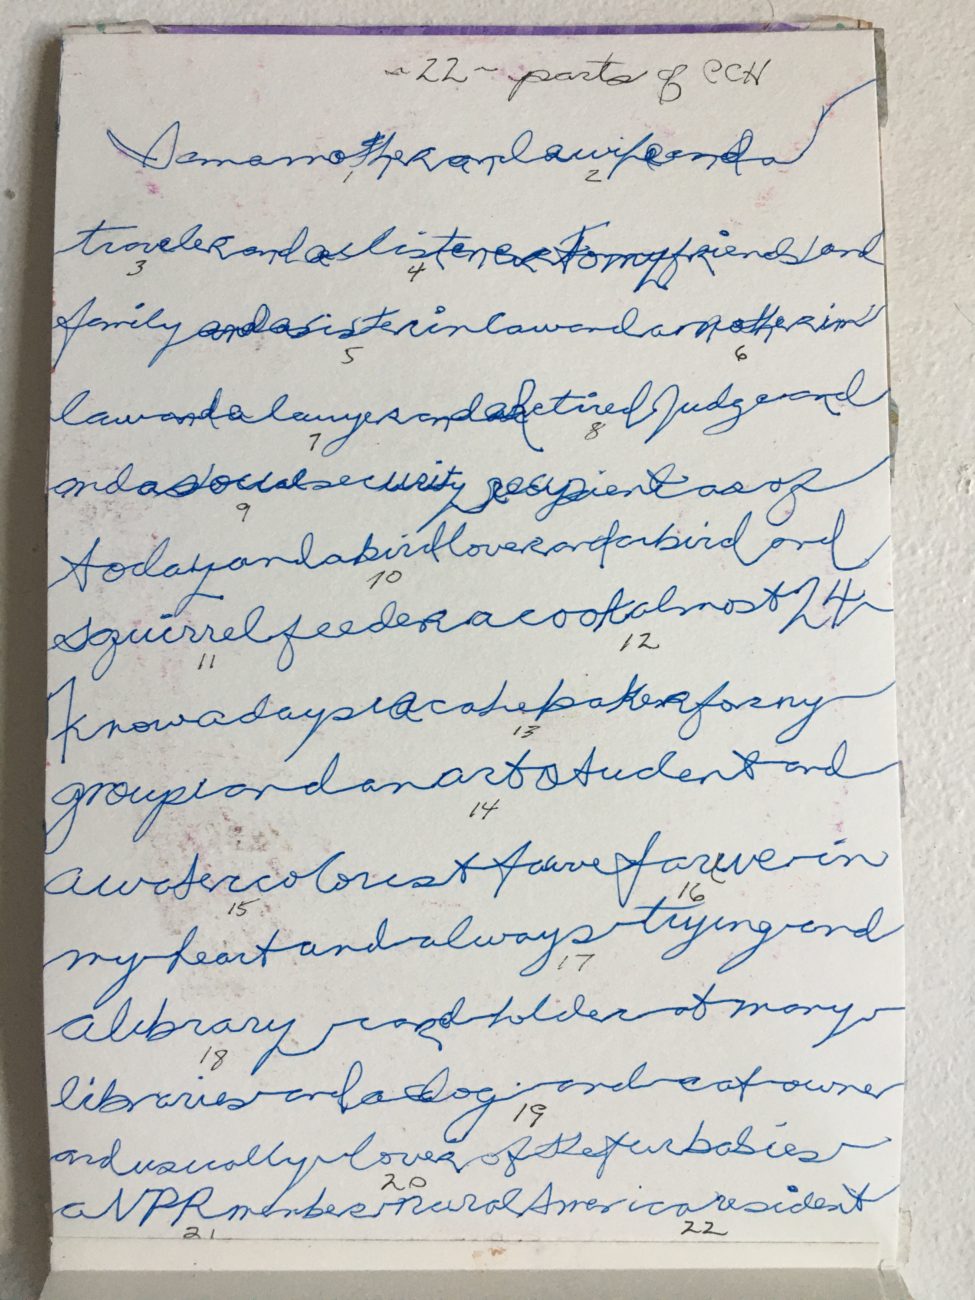 ~22~ parts of CCH
I am a mother and a wife and a
1 2
traveler and a listener to my friends and
3 4
family and a sister in law and a mother in
5 6
law and a lawyer and a retired Judge and
7 8
and a social security recipient as of
9
today and a bird lover and a bird and
10
squirrel feeder a cook almost 24
11 12
7 now a days a cake baker for my
13
groups and an art student and
14
a watercolorist forever in
15 16
my heart and always trying and
17
a library card holder at many
18
libraries and a dog and cat owner
19
and usually lover of the fur babies
20
a NPR member rural America resident
21 22